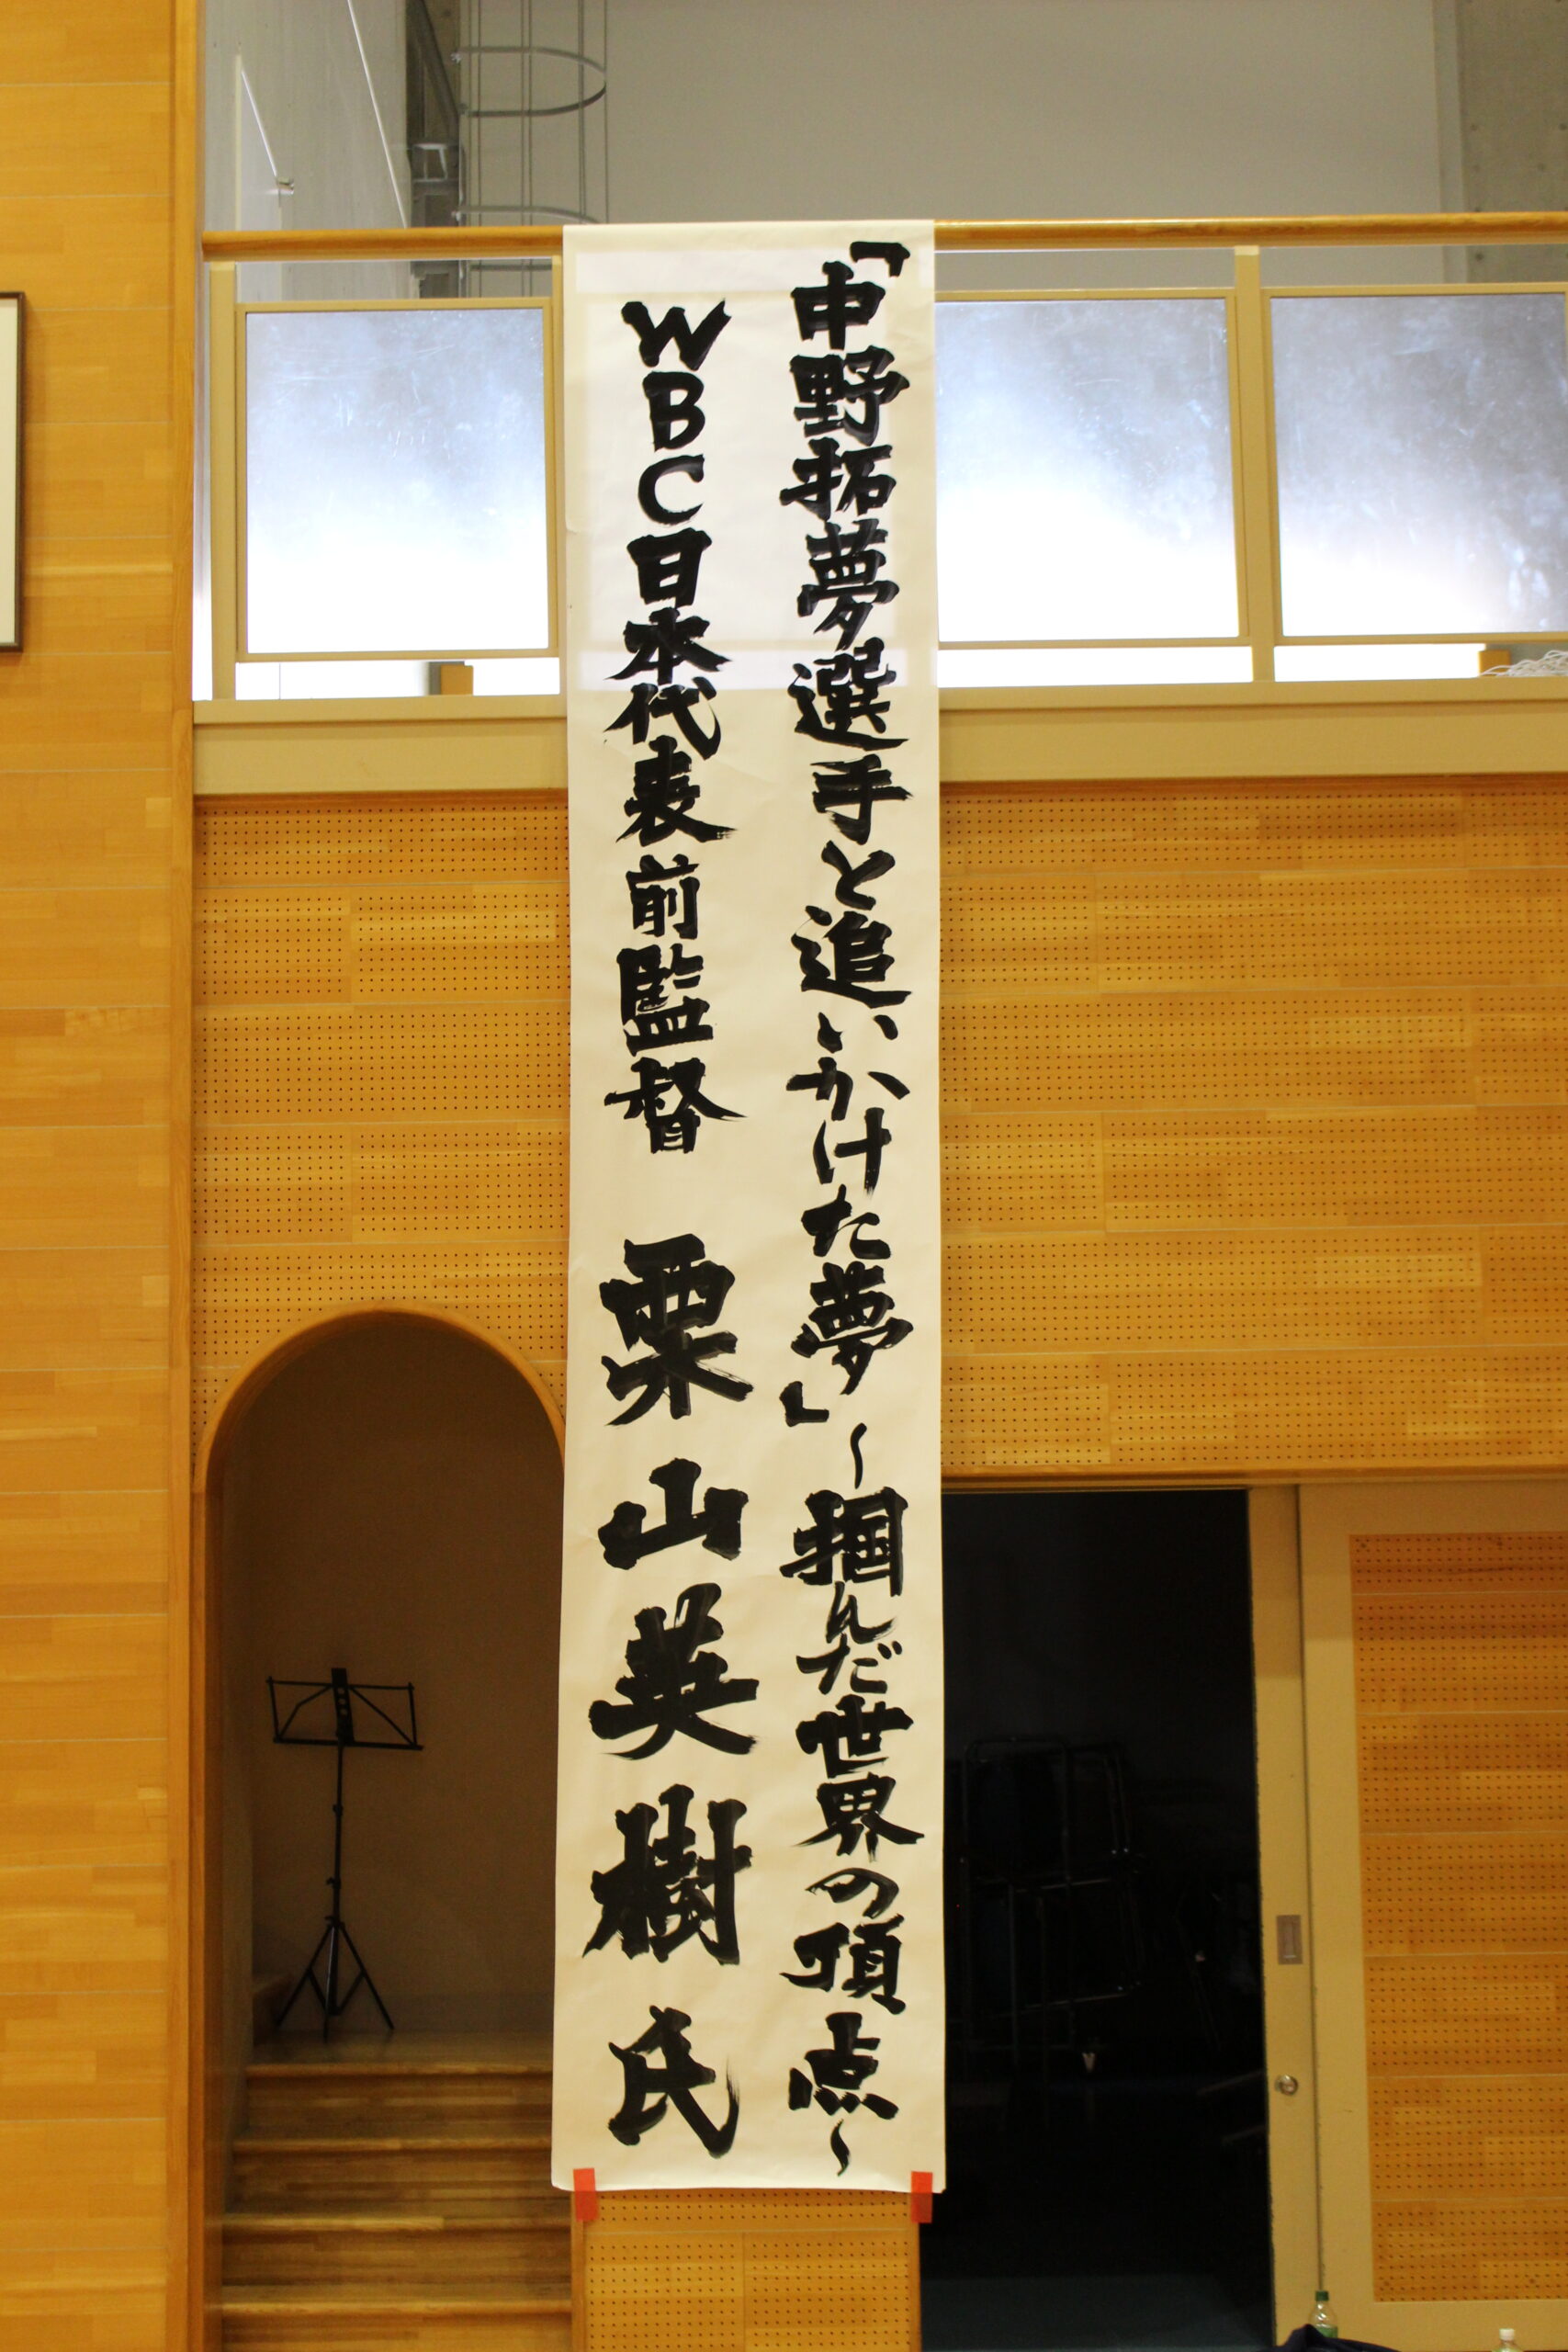 「中野拓夢選手と追いかけた夢」～掴んだ世界の頂点～
WBC日本代表前監督 栗山英樹氏